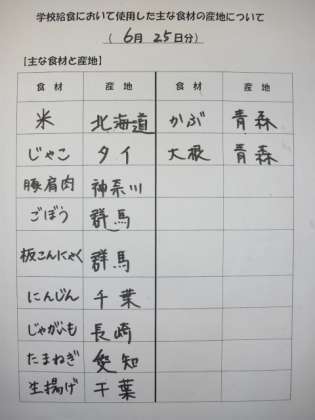 学校給食において使用した主な食材の産地について
( 6月 25日分)
【主な食材と産地】
食材 産地 食材 産地
米 北海道 かぶ 青森
じゃこ タイ 大根 青森
豚肩肉 神奈川
ごぼう 群馬
板こんにゃく 群馬
にんじん 千葉
じゃがいも 長崎
たまねぎ 愛知
生揚げ 千葉